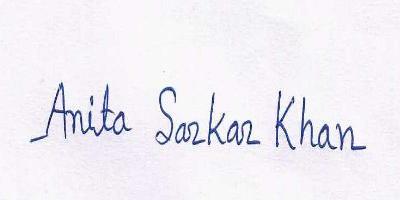 Anita Sarkar Khan